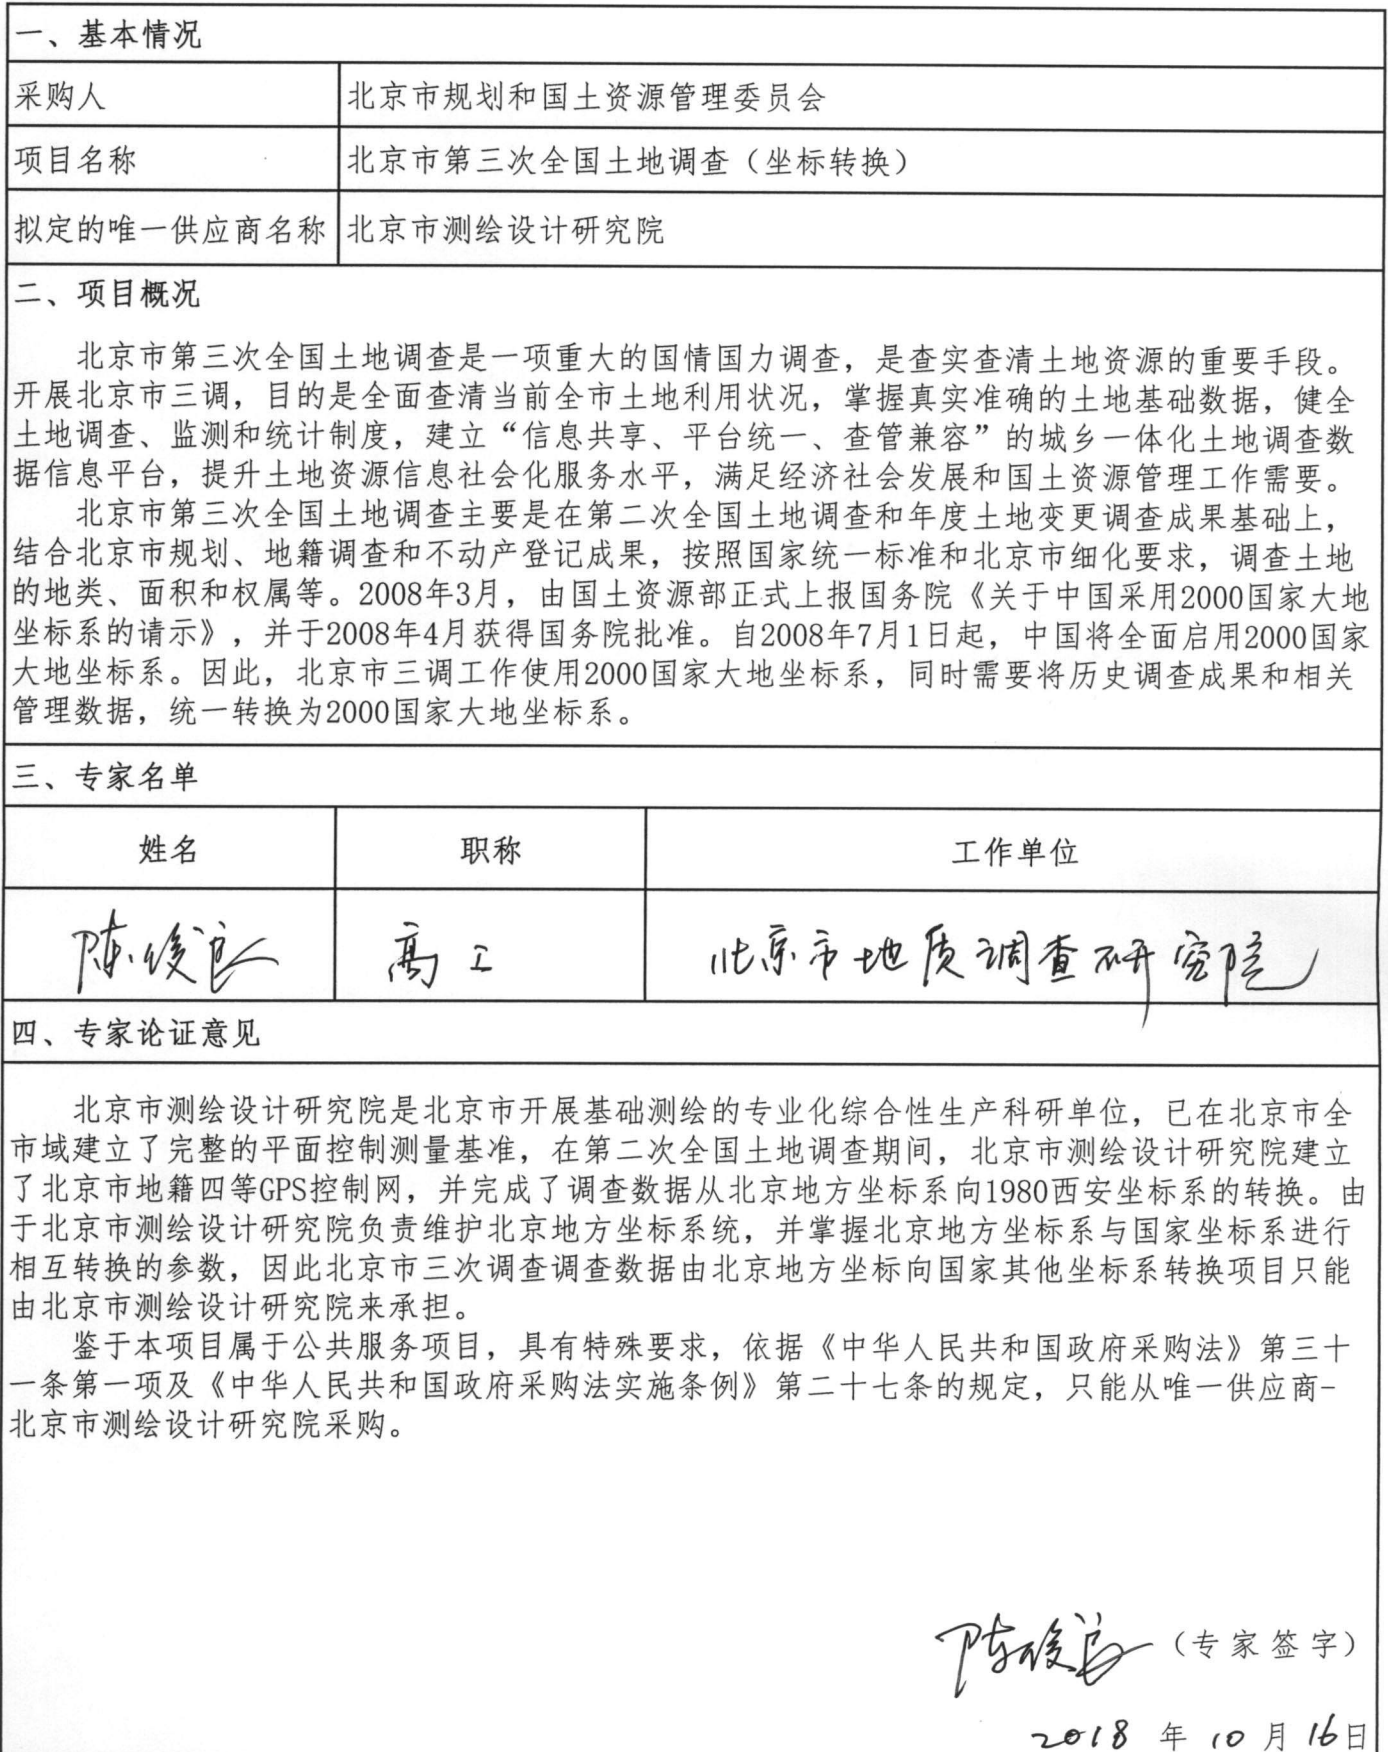 一、基本情况
采购人 北京市规划和国土资源管理委员会
项目名称 北京市第三次全国土地调查（坐标转换）
拟定的唯一供应商名称 北京市测绘设计研究院
二、项目概况
北京市第三次全国土地调查是一项重大的国情国力调查，是查实查清土地资源的重要手段。
开展北京市三调，目的是全面查清当前全市土地利用状况，掌握真实准确的土地基础数据，健全
土地调查、监测和统计制度，建立“信息共享、平台统一、查管兼容”的城乡一体化土地调查数
据信息平台，提升土地资源信息社会化服务水平，满足经济社会发展和国土资源管理工作需要。
北京市第三次全国土地调查主要是在第二次全国土地调查和年度土地变更调查成果基础上，
结合北京市规划、地籍调查和不动产登记成果，按照国家统一标准和北京市细化要求，调查土地
的地类、面积和权属等。2008年3月，由国土资源部正式上报国务院《关于中国采用2000国家大地
坐标系的请示》，并于2008年4月获得国务院批准。自2008年7月1日起，中国将全面启用2000国家
大地坐标系。因此，北京市三调工作使用2000国家大地坐标系，同时需要将历史调查成果和相关
管理数据，统一转换为2000国家大地坐标系。
三、专家名单
姓名 职称 工作单位
陈俊良 高工 北京市地质调查研究院
四、专家论证意见
北京市测绘设计研究院是北京市开展基础测绘的专业化综合性生产科研单位，已在北京市全
市域建立了完整的平面控制测量基准，在第二次全国土地调查期间，北京市测绘设计研究院建立
了北京市地籍四等GPS控制网，并完成了调查数据从北京地方坐标系向1980西安坐标系的转换。由
于北京市测绘设计研究院负责维护北京地方坐标系统，并掌握北京地方坐标系与国家坐标系进行
相互转换的参数，因此北京市三次调查调查数据由北京地方坐标向国家其他坐标系转换项目只能
由北京市测绘设计研究院来承担。
鉴于本项目属于公共服务项目，具有特殊要求，依据《中华人民共和国政府采购法》第三十
一条第一项及《中华人民共和国政府采购法实施条例》第二十七条的规定，只能从唯一供应商-
北京市测绘设计研究院采购。
陈俊良（专家签字）
2018 年 10 月 16日